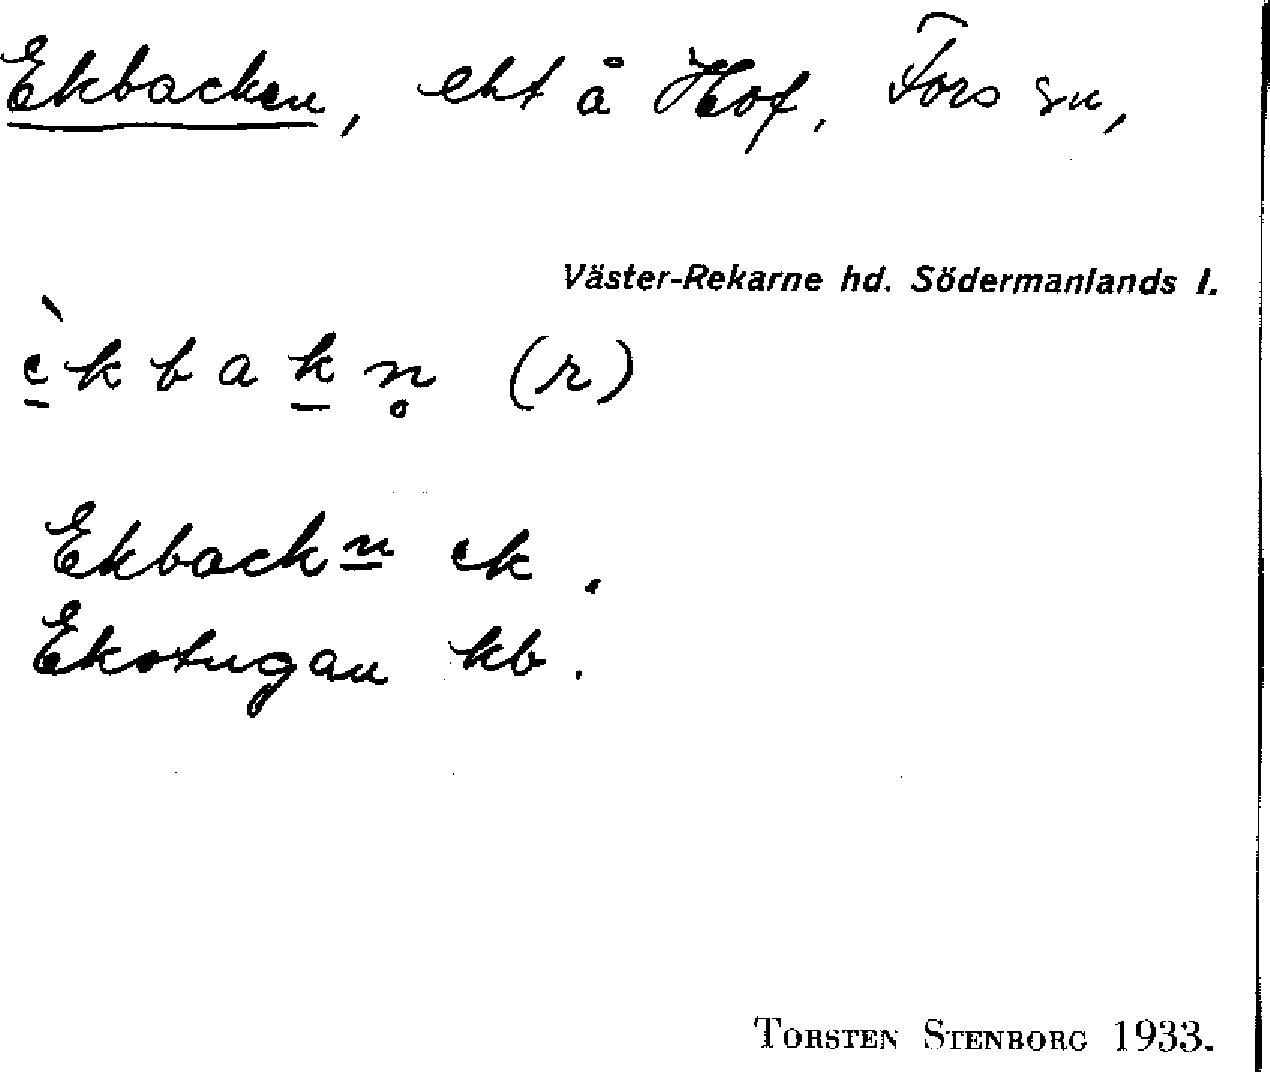 Ekbacken, eht å Hof, Fors sn,
Väster-Rekarne hd. Södermanlands l.
è̱kbaḵn̥ (r)
Ekbackn ek.
Ekstugan kb.
TORSTEN STENBORG 1933.